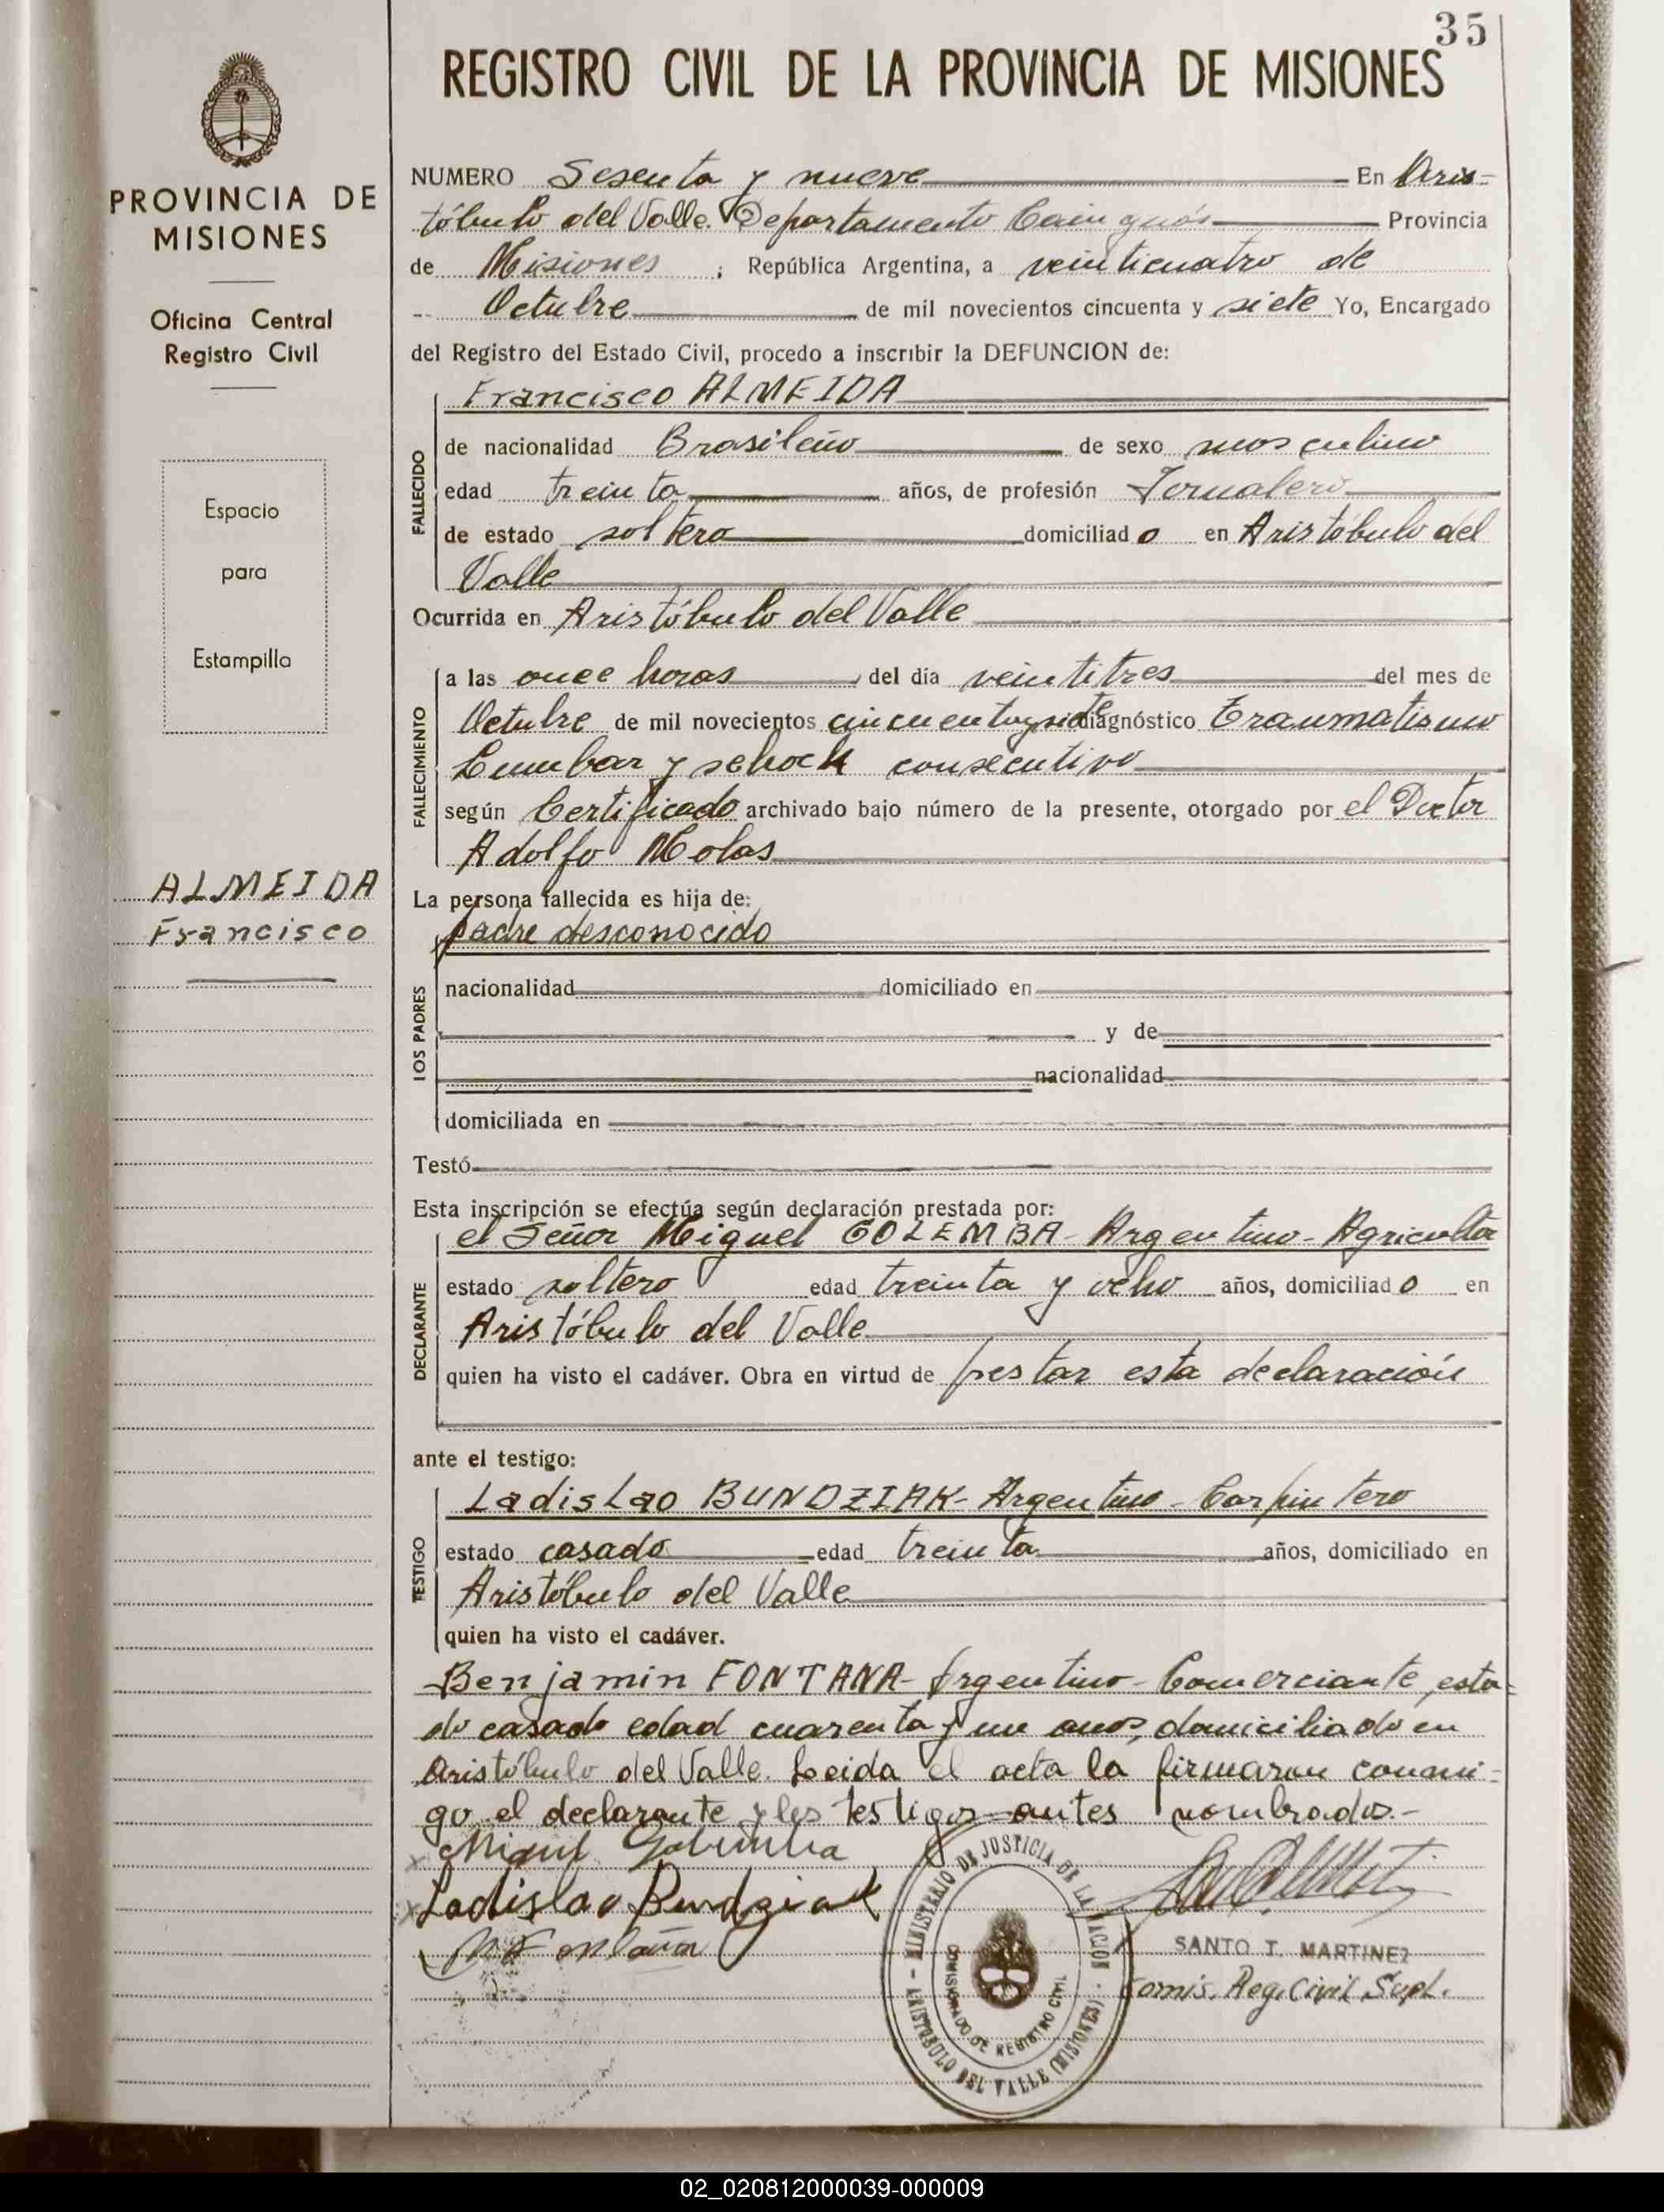 35
REGISTRO CIVIL DE LA PROVINCIA DE MISIONES
PROVINCIA DE
MISIONES
Oficina Central
Registro Civil
Espacio
para
Estampilla
ALMEIDA
Francisco
NUMERO Sesenta y nueve En Aris=
tóbulo del Valle. Departamento Cainguás Provincia
de Misiones ; República Argentina, a veinticuatro de
Octubre de mil novecientos cincuenta y siete Yo, Encargado
del Registro del Estado Civil, procedo a inscribir la DEFUNCION de:
FALLECIDO
Francisco ALMEIDA
de nacionalidad Brasileño de sexo masculino
edad treinta años, de profesión Jornalero
de estado soltero domiciliad o en Aristóbulo del
Valle
Ocurrida en Aristóbulo del Valle
FALLECIMIENTO
a las once horas del día veintitres del mes de
Octubre de mil novecientos cincuentaysiete diagnóstico Traumatismo
Lumbar y schock consecutivo
según Certificado archivado bajo número de la presente, otorgado por el Doctor
Adolfo Molas
La persona fallecida es hija de:
LOS PADRES
padre desconocido
nacionalidad domiciliado en
y de
nacionalidad
domiciliada en
Testó
Esta inscripción se efectúa según declaración prestada por:
DECLARANTE
el Señor Miguel GOLEMBA - Argentino - Agricultor
estado soltero edad treinta y ocho años, domiciliad o en
Aristóbulo del Valle
quien ha visto el cadáver. Obra en virtud de prestar esta declaración
ante el testigo:
TESTIGO
Ladislao BUNDZIAK - Argentino - Carpintero
estado casado edad treinta años, domiciliado en
Aristóbulo del Valle
quien ha visto el cadáver.
Benjamin FONTANA - Argentino - Comerciante, esta=
do casado edad cuarenta y un anos, domiciliado en
Aristóbulo del Valle. Leida el acta la firmaron conmi=
go el declarante y los testigos antes nombrados.-
Miguel Golemba
Ladislao Bundziak
MINISTERIO DE JUSTICIA DE LA NACION
COMISIONADO DE REGISTRO CIVIL
ARISTOBULO DEL VALLE (MISIONES)
SANTO T. MARTINEZ
Comis. Reg. Civil Supl.
02_020812000039-000009